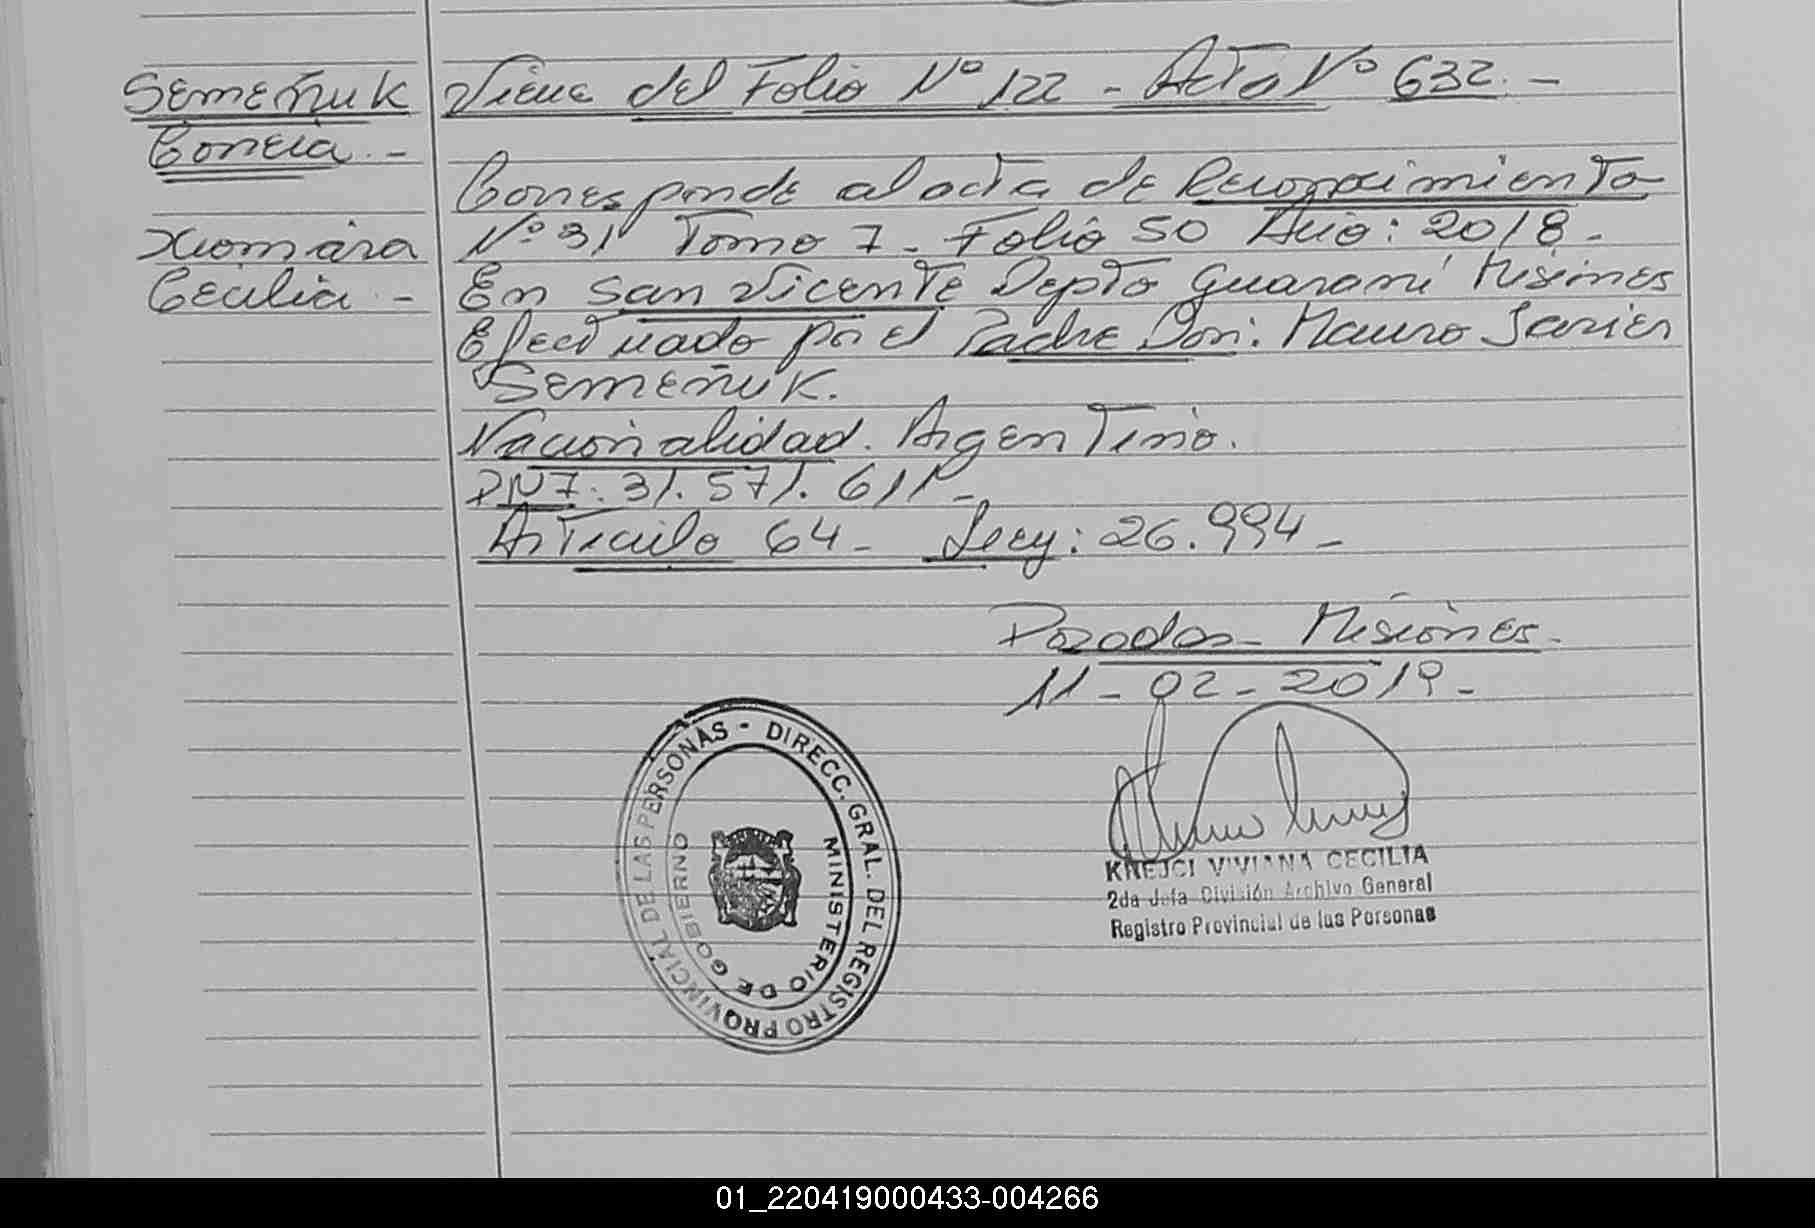 Semeñuk
Correia. -
Xiomara
Cecilia. -
Viene del Folio Nº 122 - Acta Nº 632. -
Corresponde al acta de Reconocimiento
Nº 31 Tomo 7 - Folio 50 Año: 2018 -
En San Vicente Depto Guaraní Misiones
Efectuado por el Padre Don: Mauro Javier
Semeñuk.
Nacionalidad. Argentino.
DNI: 31.571.611 -
Articulo 64 - Ley: 26.994 -
Posadas - Misiones -
11 - 02 - 2019 -
DIRECC. GRAL. DEL REGISTRO PROVINCIAL DE LAS PERSONAS -
MINISTERIO DE GOBIERNO
KREJCI VIVIANA CECILIA
2da Jefa División Archivo General
Registro Provincial de las Personas
01_220419000433-004266